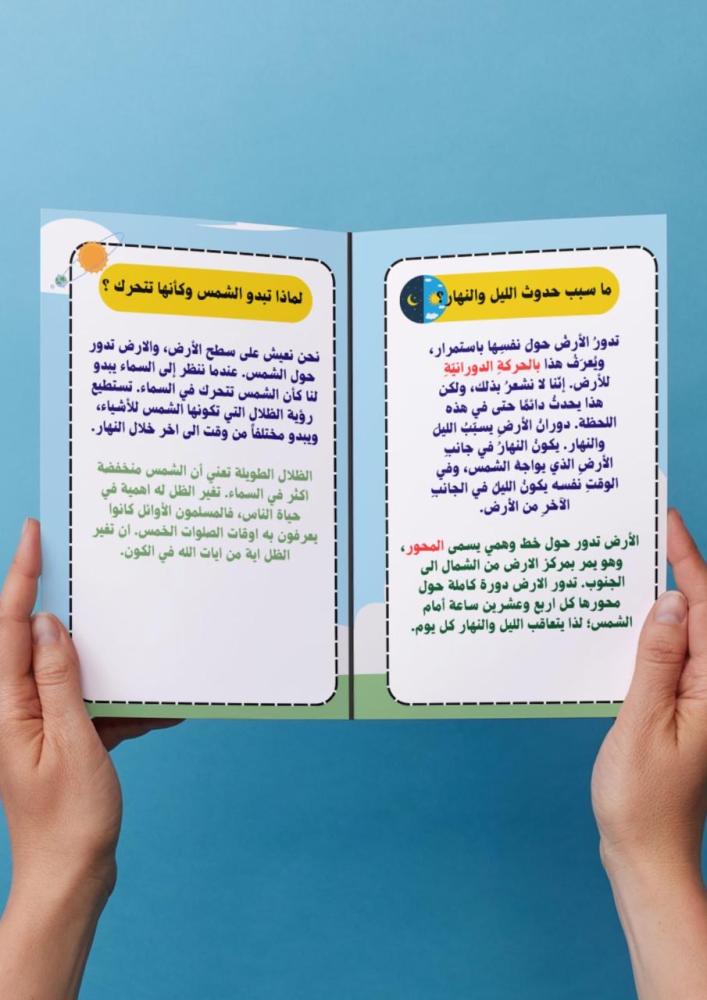 ما سبب حدوث الليل والنهار؟
تدورُ الأرضُ حولَ نفسِها باستمرار،
ويُعرَفُ هذا بالحركةِ الدورانيّةِ
للأرض. إنّنا لا نشعرُ بذلك، ولكن
هذا يحدثُ دائمًا حتى في هذه
اللحظة. دورانُ الأرضِ يسبّبُ الليلَ
والنهار. يكونُ النهارُ في جانبِ
الأرضِ الذي يواجهُ الشمس، وفي
الوقتِ نفسه يكونُ الليلَ في الجانبِ
الآخرِ من الأرض.
الأرض تدور حول خط وهمي يسمى المحور،
وهو يمر بمركز الارض من الشمال الى
الجنوب. تدور الارض دورة كاملة حول
محورها كل اربع وعشرين ساعة أمام
الشمس؛ لذا يتعاقب الليل والنهار كل يوم.
لماذا تبدو الشمس وكأنها تتحرك ؟
نحن نعيش على سطح الأرض، والارض تدور
حول الشمس. عندما ننظر إلى السماء يبدو
لنا كأن الشمس تتحرك في السماء. تستطيع
رؤية الظلال التي تكونها الشمس للأشياء،
ويبدو مختلفاً من وقت الى اخر خلال النهار.
الظلال الطويلة تعني أن الشمس منخفضة
اكثر في السماء. تغير الظل له اهمية في
حياة الناس، فالمسلمون الأوائل كانوا
يعرفون به اوقات الصلوات الخمس. ان تغير
الظل اية من ايات الله في الكون.